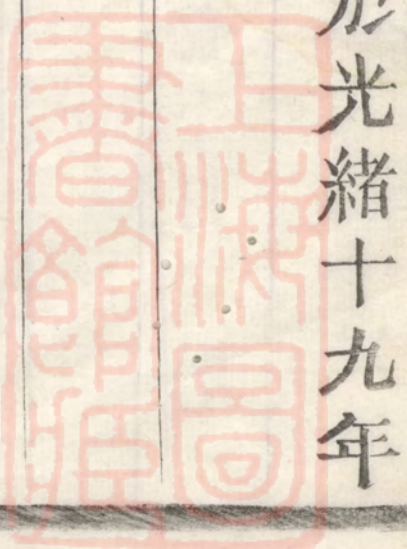 形光緒十九年
上海圖
書館藏